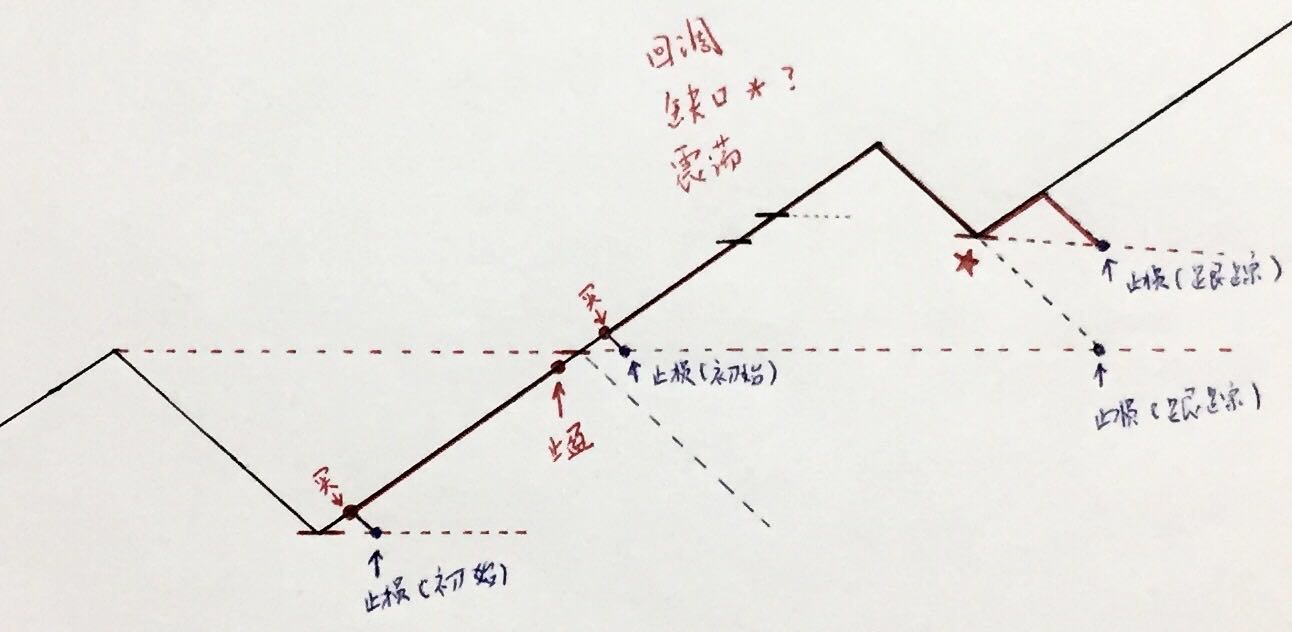 回调
缺口 * ?
震荡
买
止损(跟踪)
买
止损(初始)
止损(跟踪)
止盈
买
止损(初始)